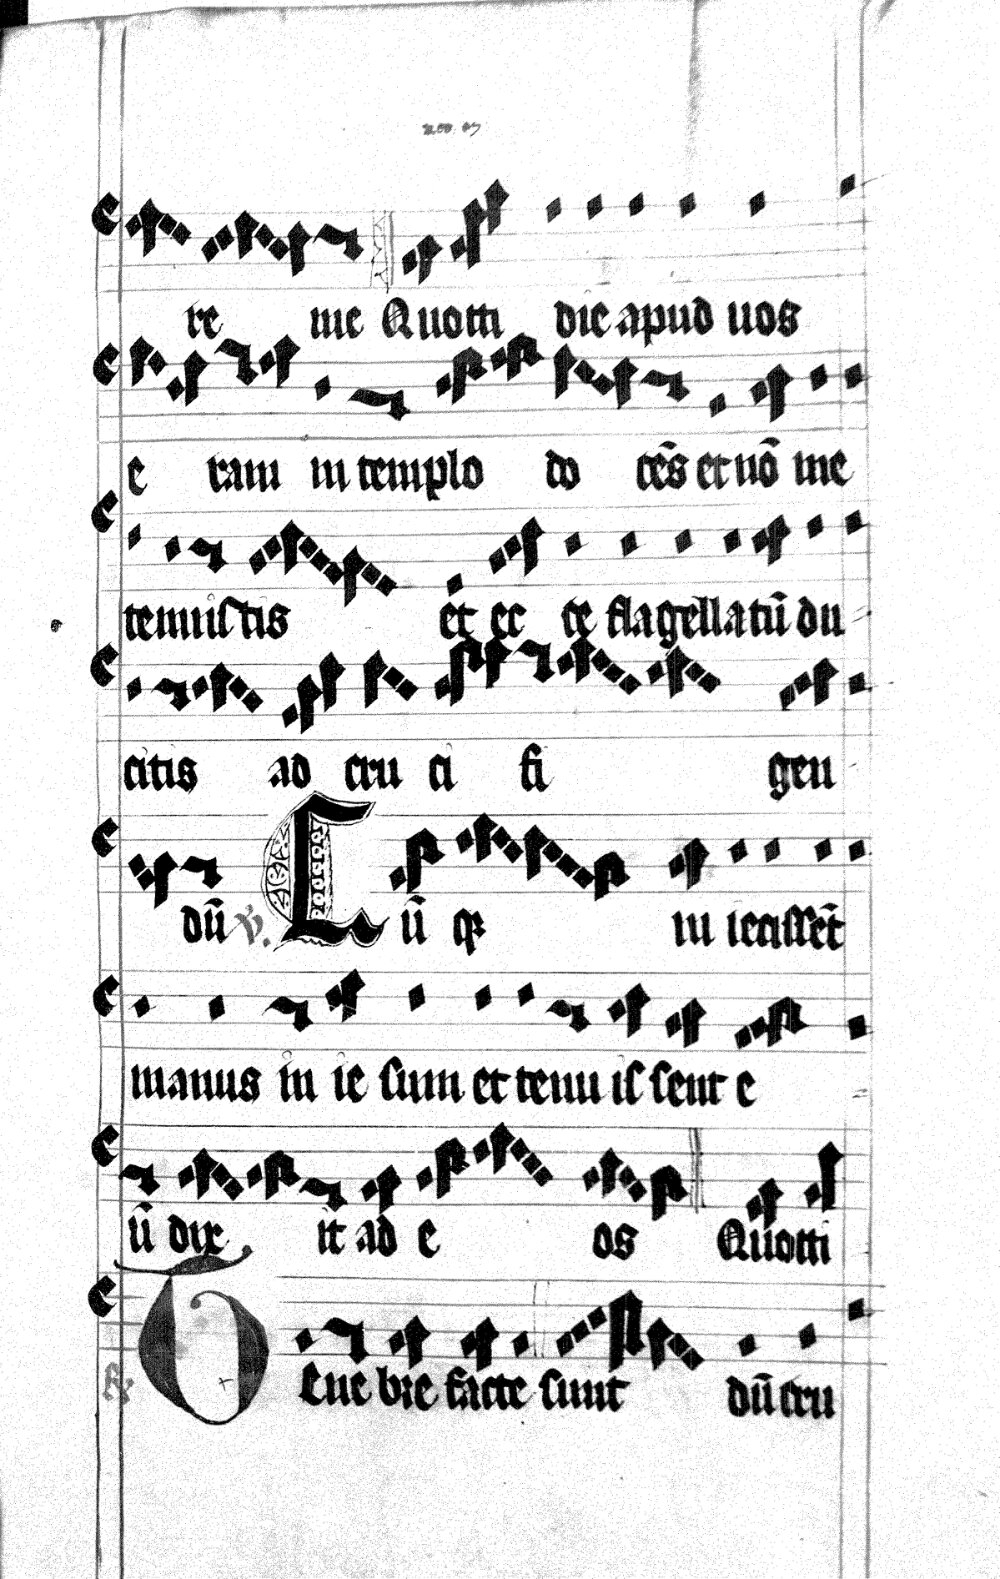 re me Quotti die apud uos
e ram in templo do cēs et nō me
tenuistis et ec ce flagellatū du
citis ad cru ci fi gen
dū ℣. Cū q̄ in iecissēt
manus in ie sum et tenu is sent e
ū dix it ad e os Quotti
℟ Tene bre facte sunt dū cru